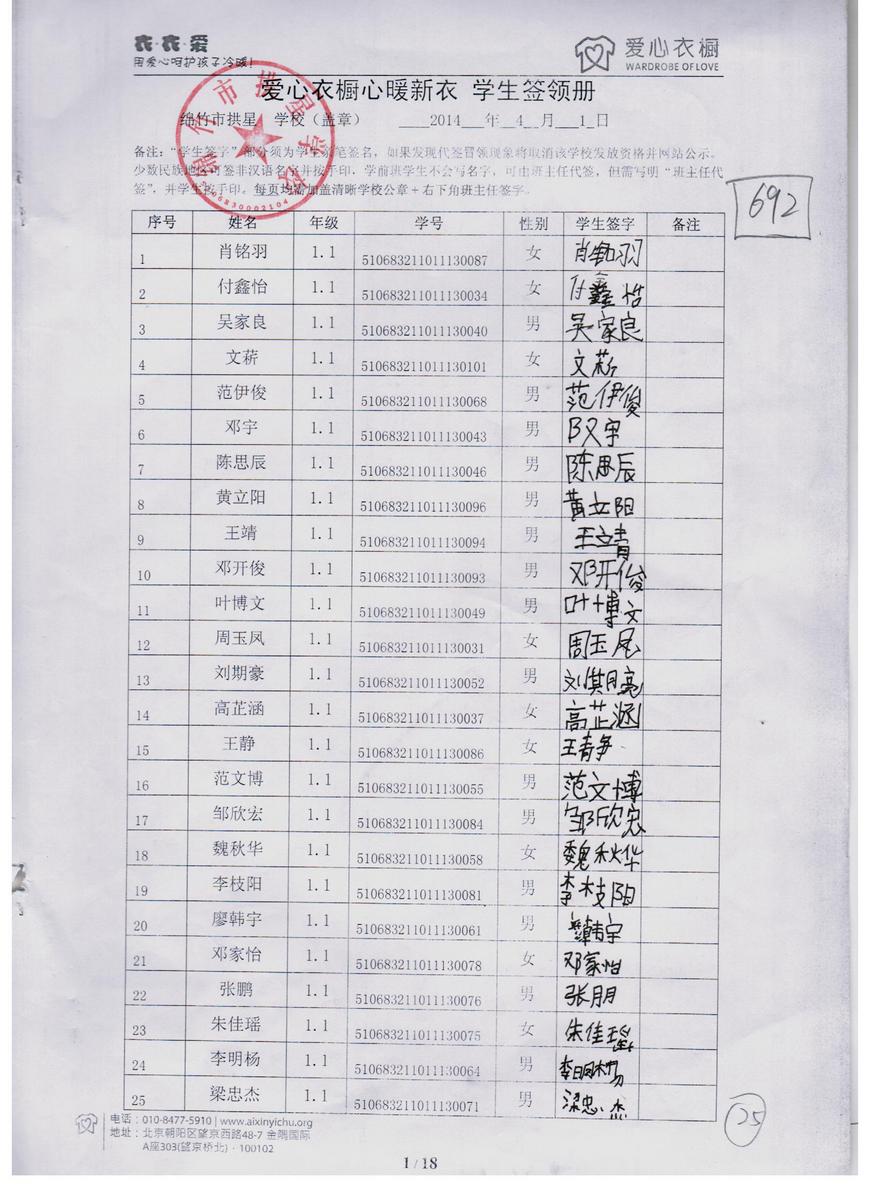 衣·衣·爱
用爱心呵护孩子冷暖!
爱心衣橱
WARDROBE OF LOVE
爱心衣橱心暖新衣 学生签领册
绵竹市拱星 学校（盖章） 2014 年 4 月 1 日
绵竹市拱星学校
5106830002104
备注：“学生签字”部分须为学生亲笔签名，如果发现代签冒领现象将取消该学校发放资格并网站公示。
少数民族地区可签非汉语名字并按手印，学前班学生不会写名字，可由班主任代签，但需写明“班主任代
签”，并学生按手印。每页均需加盖清晰学校公章＋右下角班主任签字。
692
序号 姓名 年级 学号 性别 学生签字 备注
1 肖铭羽 1.1 510683211011130087 女 肖铭羽
2 付鑫怡 1.1 510683211011130034 女 付鑫怡
3 吴家良 1.1 510683211011130040 男 吴家良
4 文菥 1.1 510683211011130101 女 文菥
5 范伊俊 1.1 510683211011130068 男 范伊俊
6 邓宇 1.1 510683211011130043 男 邓宇
7 陈思辰 1.1 510683211011130046 男 陈思辰
8 黄立阳 1.1 510683211011130096 男 黄立阳
9 王靖 1.1 510683211011130094 男 王靖
10 邓开俊 1.1 510683211011130093 男 邓开俊
11 叶博文 1.1 510683211011130049 男 叶博文
12 周玉凤 1.1 510683211011130031 女 周玉凤
13 刘期豪 1.1 510683211011130052 男 刘期豪
14 高芷涵 1.1 510683211011130037 女 高芷涵
15 王静 1.1 510683211011130086 女 王静
16 范文博 1.1 510683211011130055 男 范文博
17 邹欣宏 1.1 510683211011130084 男 邹欣宏
18 魏秋华 1.1 510683211011130058 女 魏秋华
19 李枝阳 1.1 510683211011130081 男 李枝阳
20 廖韩宇 1.1 510683211011130061 男 廖韩宇
21 邓家怡 1.1 510683211011130078 女 邓家怡
22 张鹏 1.1 510683211011130076 男 张朋
23 朱佳瑶 1.1 510683211011130075 女 朱佳瑶
24 李明杨 1.1 510683211011130064 男 李明杨
25 梁忠杰 1.1 510683211011130071 男 梁忠杰
25
电话：010-8477-5910 | www.aixinyichu.org
地址：北京朝阳区望京西路48-7 金隅国际
A座303(望京桥北)·100102
1 / 18